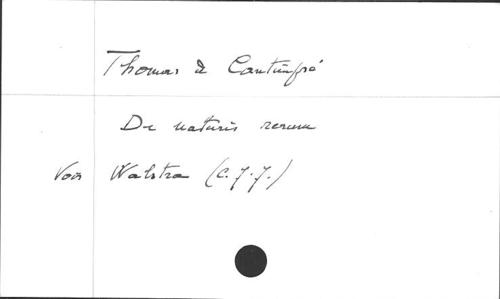 Thomas à Cantimpré
De naturis rerum
Voor Walstra (C.J.J.)